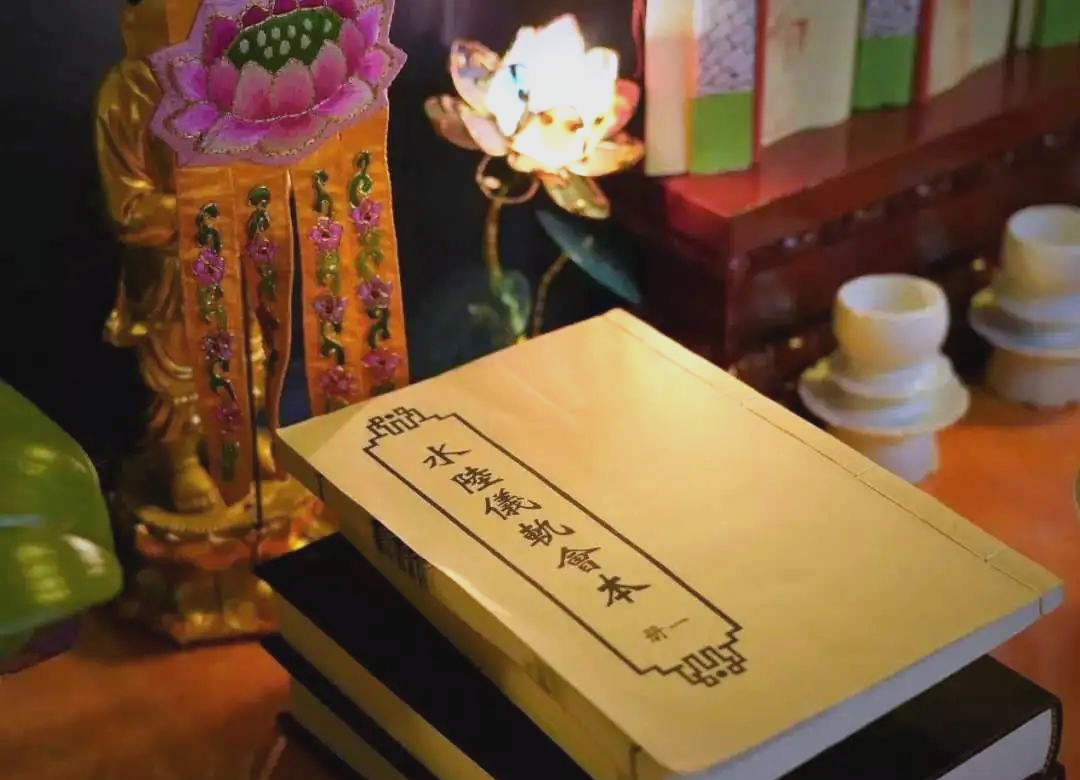 水陸儀軌會本
冊一